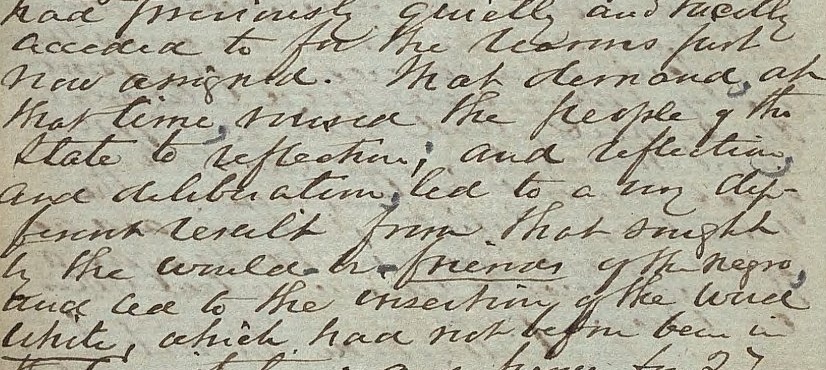 had previously quietly and tacitly
acceded to for the reasons just
now assigned. That demand, at
that time, roused the people of the
State to reflection; and reflection,
and deliberation, led to a very dif-
ferent result from that sought
by the would-be-friends of the negro,
and led to the insertion of the word
white, which had not before been in